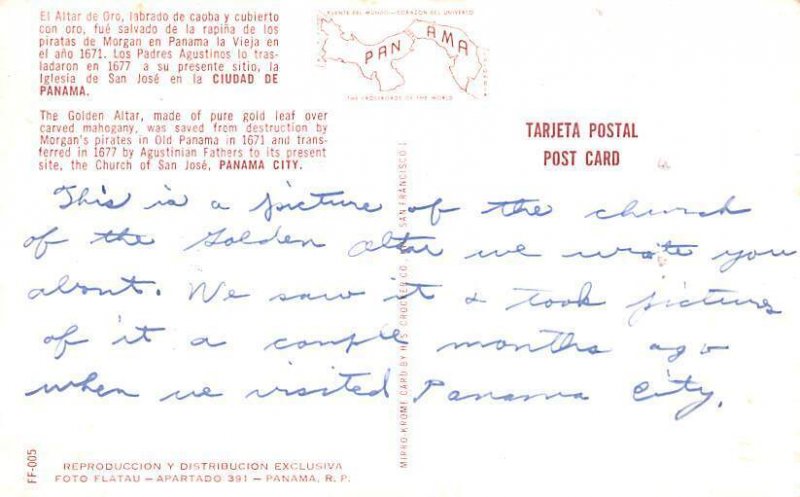 El Altar de Oro, labrado de caoba y cubierto
con oro, fué salvado de la rapiña de los
piratas de Morgan en Panama la Vieja en
el año 1671. Los Padres Agustinos lo tras-
ladaron en 1677 a su presente sitio, la
Iglesia de San José en la CIUDAD DE
PANAMA.
The Golden Altar, made of pure gold leaf over
carved mahogany, was saved from destruction by
Morgan's pirates in Old Panama in 1671 and trans-
ferred in 1677 by Agustinian Fathers to its present
site, the Church of San José, PANAMA CITY.
PUENTE DEL MUNDO - CORAZON DEL UNIVERSO
PANAMA
THE CROSSROADS OF THE WORLD
TARJETA POSTAL
POST CARD
This is a picture of the church
of the Golden Altar we wrote you
about. We saw it & took pictures
of it a couple months ago
when we visited Panama City.
MIRRO-KROME CARD BY H. S. CROCKER CO., SAN FRANCISCO 1
FF-005
REPRODUCCION Y DISTRIBUCION EXCLUSIVA
FOTO FLATAU — APARTADO 391 — PANAMA, R. P.